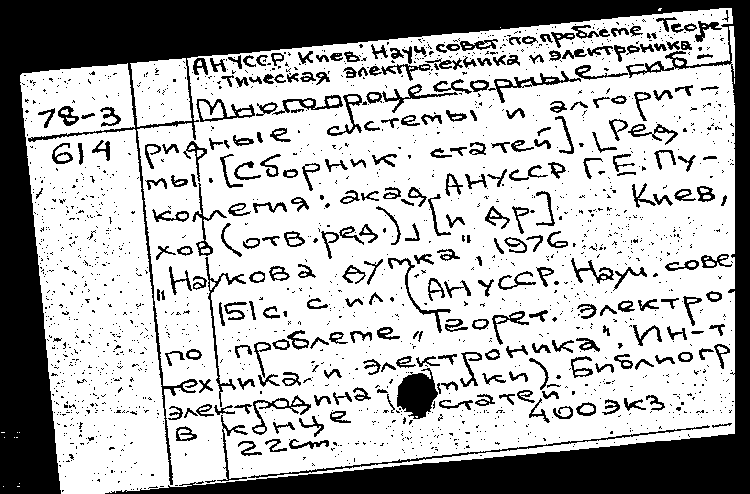 АН УССР. Киев. Науч. совет по проблеме „Теоре-
тическая электротехника и электроника".
78-3
Многопроцессорные гиб-
614
ридные системы и алгорит-
мы. [Сборник статей]. [Ред.
коллегия: акад. АН УССР Г.Е. Пу-
хов (отв. ред.), [и др.]. Киев,
„Наукова думка", 1976.
151 с. с ил. (АН УССР. Науч. сове
по проблеме „Теорет. электро-
техника и электроника". Ин-т
электродина- мики). Библиогр
в конце статей.
22 см. 400 экз.